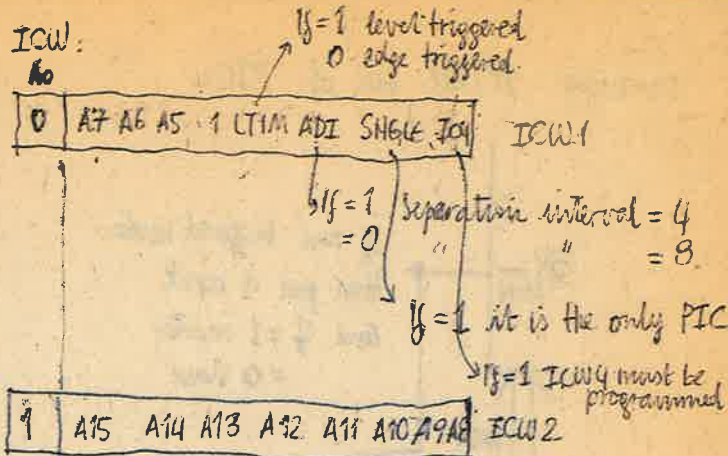 ICW:
If = 1 level triggered
0 edge triggered.
A0
0 A7 A6 A5 1 LTIM ADI SNGLE IC4 ICW1
If = 1 Separation interval = 4
= 0 " " = 8
If = 1 it is the only PIC
If = 1 ICW4 must be
programmed
1 A15 A14 A13 A12 A11 A10 A9 A8 ICW2